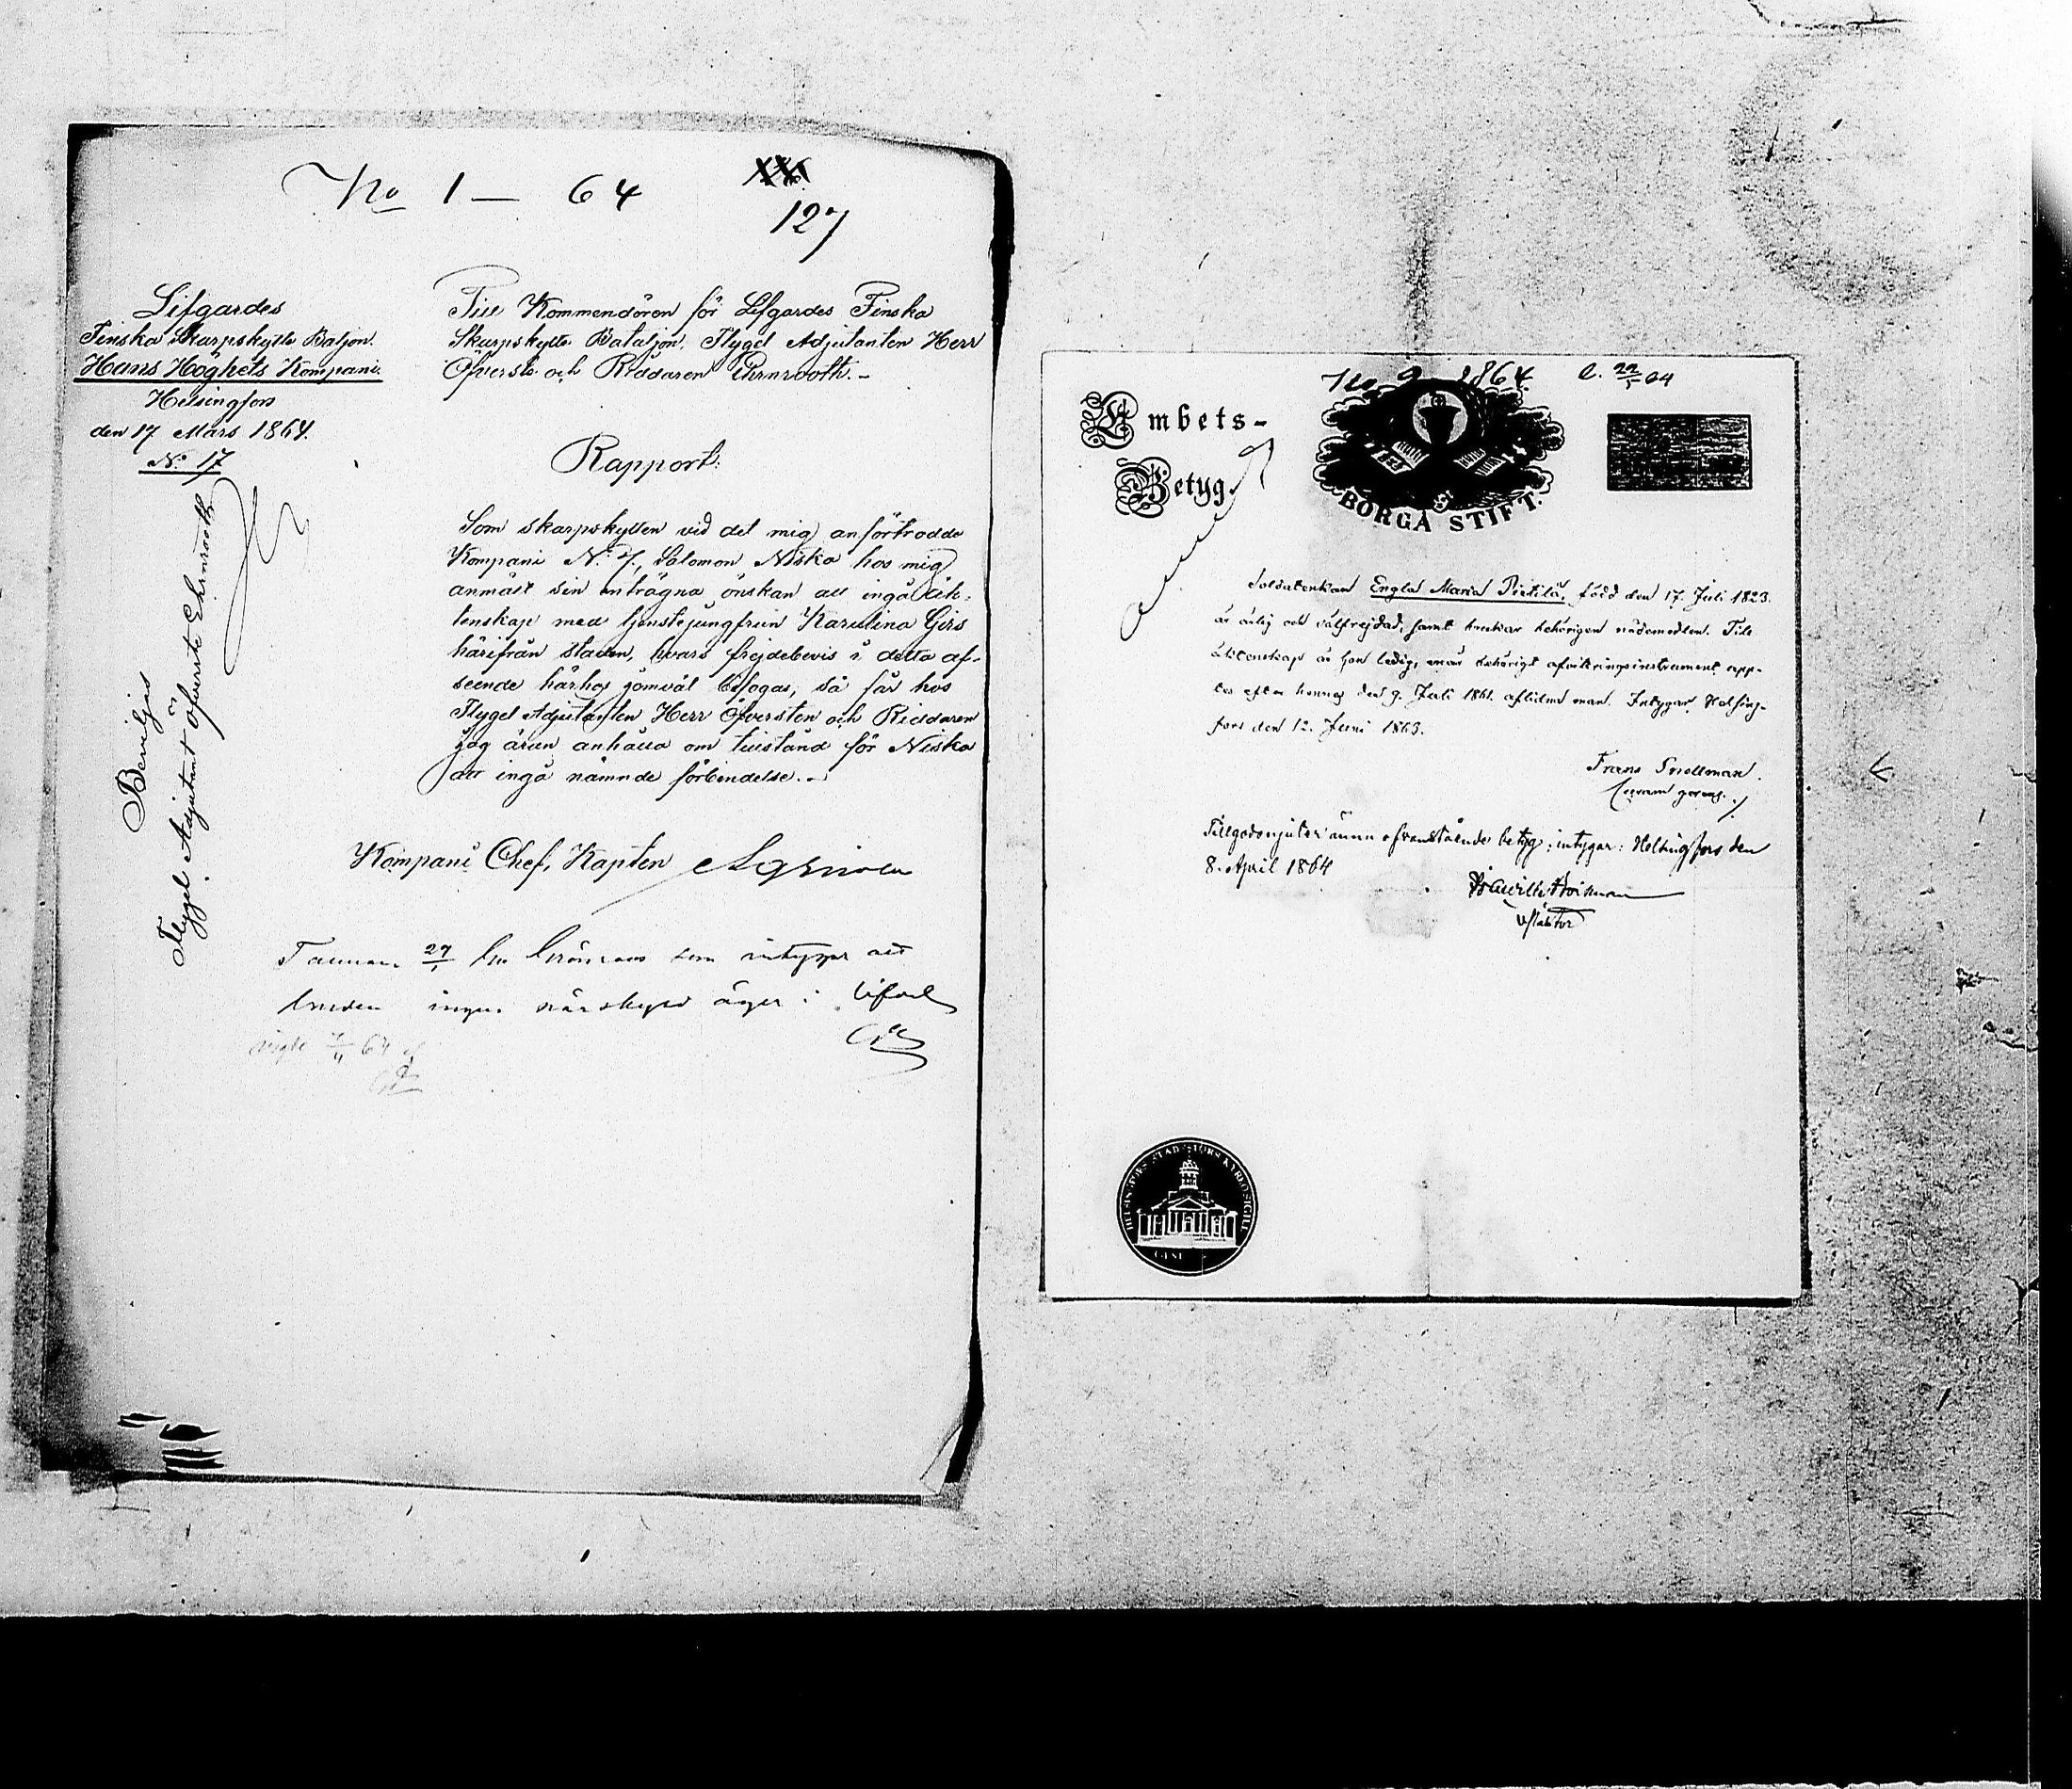 No 1 — 64
127
Lifgardes
Finska Skarpskytte Batjon.
Hans Höghets Kompani.
Helsingfors
den 17 Mars 1864.
No 17
Till Kommendören för Lifgardes Finska
Skarpskytte Bataljon, Flygel Adjutanten Herr
Öfverste och Riddaren Ehrnrooth. -
Rapport:
Som skarpskytten vid det mig anförtrodde
Kompani No 7, Salomon Niska hos mig
anmält sin enträgna önskan att ingå äk-
tenskap med tjenstejungfrun Karolina Girs
härifrån staden, hvars frejdebevis i detta af-
seende härhos jemväl bifogas, så får hos
Flygel Adjutanten Herr Öfversten och Riddaren
jag äfven anhålla om tillstånd för Niska
att ingå nämnde förbindelse. -
Kompani Chef, Kapten
Beviljas
Flygel Adjutant Öfverste Ehrnrooth
som intygar att
bruden ingen närskyld äger i lifvet
vigde 64
No 2 1864. 64
Embets-
Betyg.
BORGÅ STIFT.
Soldatenkan Engla Maria Pietilä, född den 17. Juli 1823.
är ärlig och välfrejdad, samt brukar behörigen nådemedlen. Till
äktenskap är hon ledig, enär behörigt afvittringsinstrument upp-
tes efter hennes den 9. Juli 1861. aflidne man. Intygar Helsing-
fors den 12. Juni 1863.
Frans Snellman.
Tillgodonjuter ännu ofvanstående betyg; intygar: Helsingfors den
8. April 1864